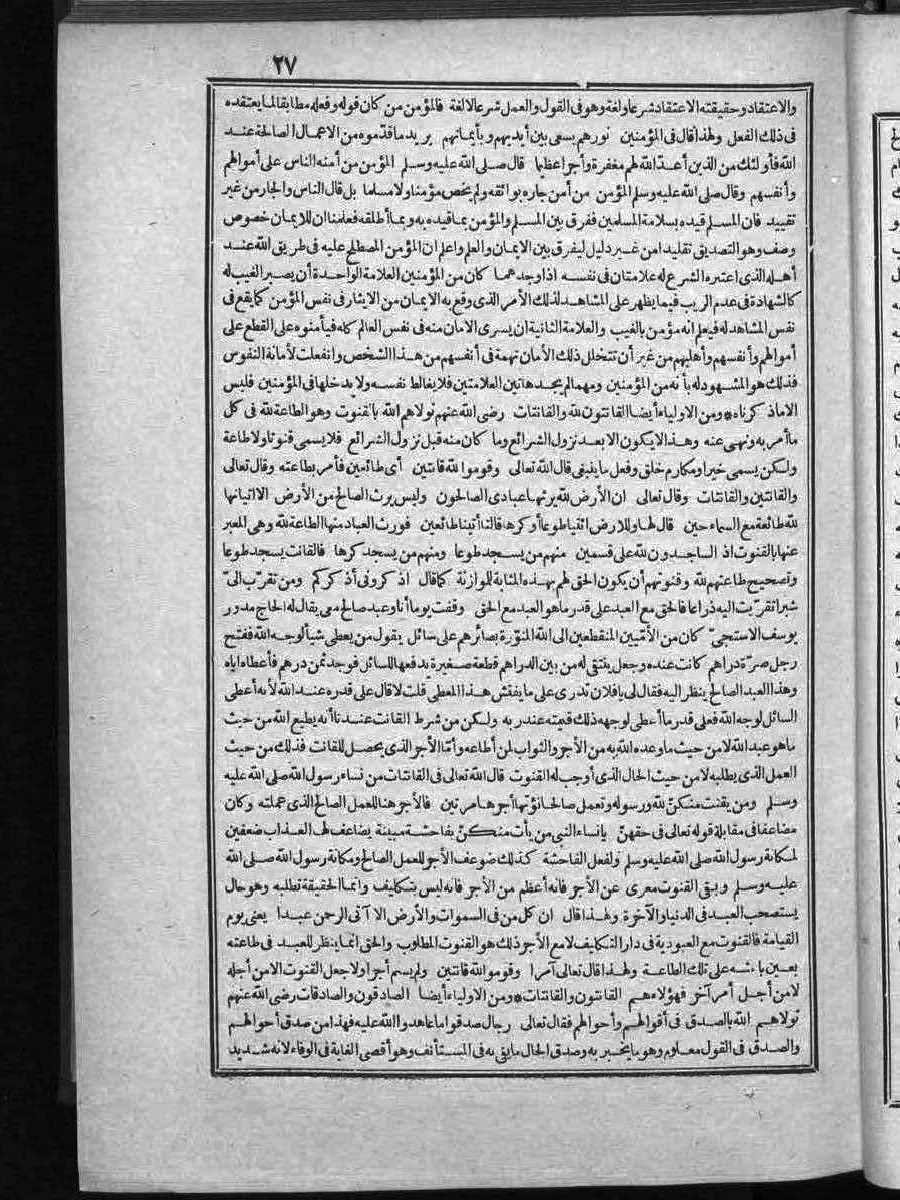 ٢٧
والاعتقاد وحقيقته الاعتقاد شرعا ولغة وهو فى القول والعمل شرعا لا لغة فالمؤمن من كان قوله وفعله مطابقا لما يعتقده
فى ذلك الفعل ولهذا قال فى المؤمنين نورهم يسعى بين أيديهم وبأيمانهم يريد ما قدّموه من الاعمال الصالحة عند
الله فأولئك من الذين أعدّ الله لهم مغفرة وأجرا عظيما قال صلى الله عليه وسلم المؤمن من أمنه الناس على أموالهم
وأنفسهم وقال صلى الله عليه وسلم المؤمن من أمن جاره بوائقه ولم يخص مؤمنا ولا مسلما بل قال الناس والجار من غير
تقييد فان المسلم قيده بسلامة المسلمين ففرق بين المسلم والمؤمن بما قيده به وبما أطلقه فعلمنا ان للايمان خصوص
وصف وهو التصديق تقليدا من غير دليل ليفرق بين الايمان والعلم واعلم ان المؤمن المصطلح عليه فى طريق الله عند
أهله الذى اعتبره الشرع له علامتان فى نفسه اذا وجدهما كان من المؤمنين العلامة الواحدة أن يصير الغيب له
كالشهادة فى عدم الريب فيما يظهر على المشاهد لذلك الأمر الذى وقع به الايمان من الايثار فى نفس المؤمن كما يقع فى
نفس المشاهد له فيعلم انه مؤمن بالغيب والعلامة الثانية ان يسرى الامان منه فى نفس العالم كله فيأمنوه على القطع على
أموالهم وأنفسهم وأهليهم من غير أن تتخلل ذلك الأمان تهمة فى أنفسهم من هذا الشخص وانفعلت لأمانة النفوس
فذلك هو المشهود له بأنه من المؤمنين ومهما لم يجد هاتين العلامتين فلا يغالط نفسه ولا يدخلها فى المؤمنين فليس
الا ما ذكرناه * ومن الاولياء أيضا القانتون لله والقانتات رضى الله عنهم تولاهم الله بالقنوت وهو الطاعة لله فى كل
ما أمر به ونهى عنه وهذا لا يكون الا بعد نزول الشرائع وما كان منه قبل نزول الشرائع فلا يسمى قنوتا ولا طاعة
ولكن يسمى خيرا ومكارم خلق وفعل ما ينبغى قال الله تعالى وقوموا لله قانتين أى طائعين فأمر بطاعته وقال تعالى
والقانتين والقانتات وقال تعالى ان الأرض لله يرثها عبادى الصالحون وليس يرث الصالح من الأرض الا اتيانها
لله طائعة مع السماء حين قال لها وللارض ائتيا طوعا أو كرها قالتا أتينا طائعين فورث العباد منها الطاعة لله وهى المعبر
عنها بالقنوت اذ الساجدون لله على قسمين منهم من يسجد طوعا ومنهم من يسجد كرها فالقانت يسجد طوعا
وتصحيح طاعتهم لله وقنوتهم أن يكون الحق لهم بهذه المثابة للموازنة كما قال اذكرونى أذكركم ومن تقرّب الىّ
شبرا تقرّبت اليه ذراعا فالحق مع العبد على قدر ما هو العبد مع الحق وقفت يوما أنا وعبد صالح معى يقال له الحاج مدور
يوسف الاستجىّ كان من الأمّيين المنقطعين الى الله المنوّرة بصائرهم على سائل يقول من يعطى شيأ لوجه الله ففتح
رجل صرّة دراهم كانت عنده وجعل ينتقى له من بين الدراهم قطعة صغيرة يدفعها للسائل فوجد ثمن درهم فأعطاه اياه
وهذا العبد الصالح ينظر اليه فقال لى يا فلان تدرى على ما يفتش هذا المعطى قلت لا قال على قدره عند الله لأنه أعطى
السائل لوجه الله فعلى قدر ما أعطى لوجهه ذلك قيمته عند ربه ولكن من شرط القانت عندنا أنه يطيع الله من حيث
ما هو عبد الله لا من حيث ما وعده الله به من الأجر والثواب لمن أطاعه وأما الأجر الذى يحصل للقانت فذلك من حيث
العمل الذى يطلبه لا من حيث الحال الذى أوجب له القنوت قال الله تعالى فى القانتات من نساء رسول الله صلى الله عليه
وسلم ومن يقنت منكنّ لله ورسوله وتعمل صالحا نؤتها أجرها مرتين فالأجر هنا للعمل الصالح الذى عملته وكان
مضاعفا فى مقابلة قوله تعالى فى حقهنّ يا نساء النبى من يأت منكنّ بفاحشة مبينة يضاعف لها العذاب ضعفين
لمكانة رسول الله صلى الله عليه وسلم ولفعل الفاحشة كذلك ضوعف الأجر للعمل الصالح ومكانة رسول الله صلى الله
عليه وسلم وبقى القنوت معرى عن الأجر فانه أعظم من الأجر فانه ليس بتكليف وانما الحقيقة تطلبه وهو حال
يستصحب العبد فى الدنيا والآخرة ولهذا قال ان كل من فى السموات والأرض الا آتى الرحمن عبدا يعنى يوم
القيامة فالقنوت مع العبودية فى دار التكليف لا مع الأجر ذلك هو القنوت المطلوب والحق انما ينظر للعبد فى طاعته
بعين باعثه على تلك الطاعة ولهذا قال تعالى آمرا وقوموا لله قانتين ولم يسم أجرا ولا جعل القنوت الا من أجله
لا من أجل أمر آخر فهؤلاء هم القانتون والقانتات * ومن الاولياء أيضا الصادقون والصادقات رضى الله عنهم
تولاهم الله بالصدق فى أقوالهم وأحوالهم فقال تعالى رجال صدقوا ما عاهدوا الله عليه فهذا من صدق أحوالهم
والصدق فى القول معلوم وهو ما يخبر به وصدق الحال ما يفى به فى المستأنف وهو أقصى الغاية فى الوفاء لانه شديد